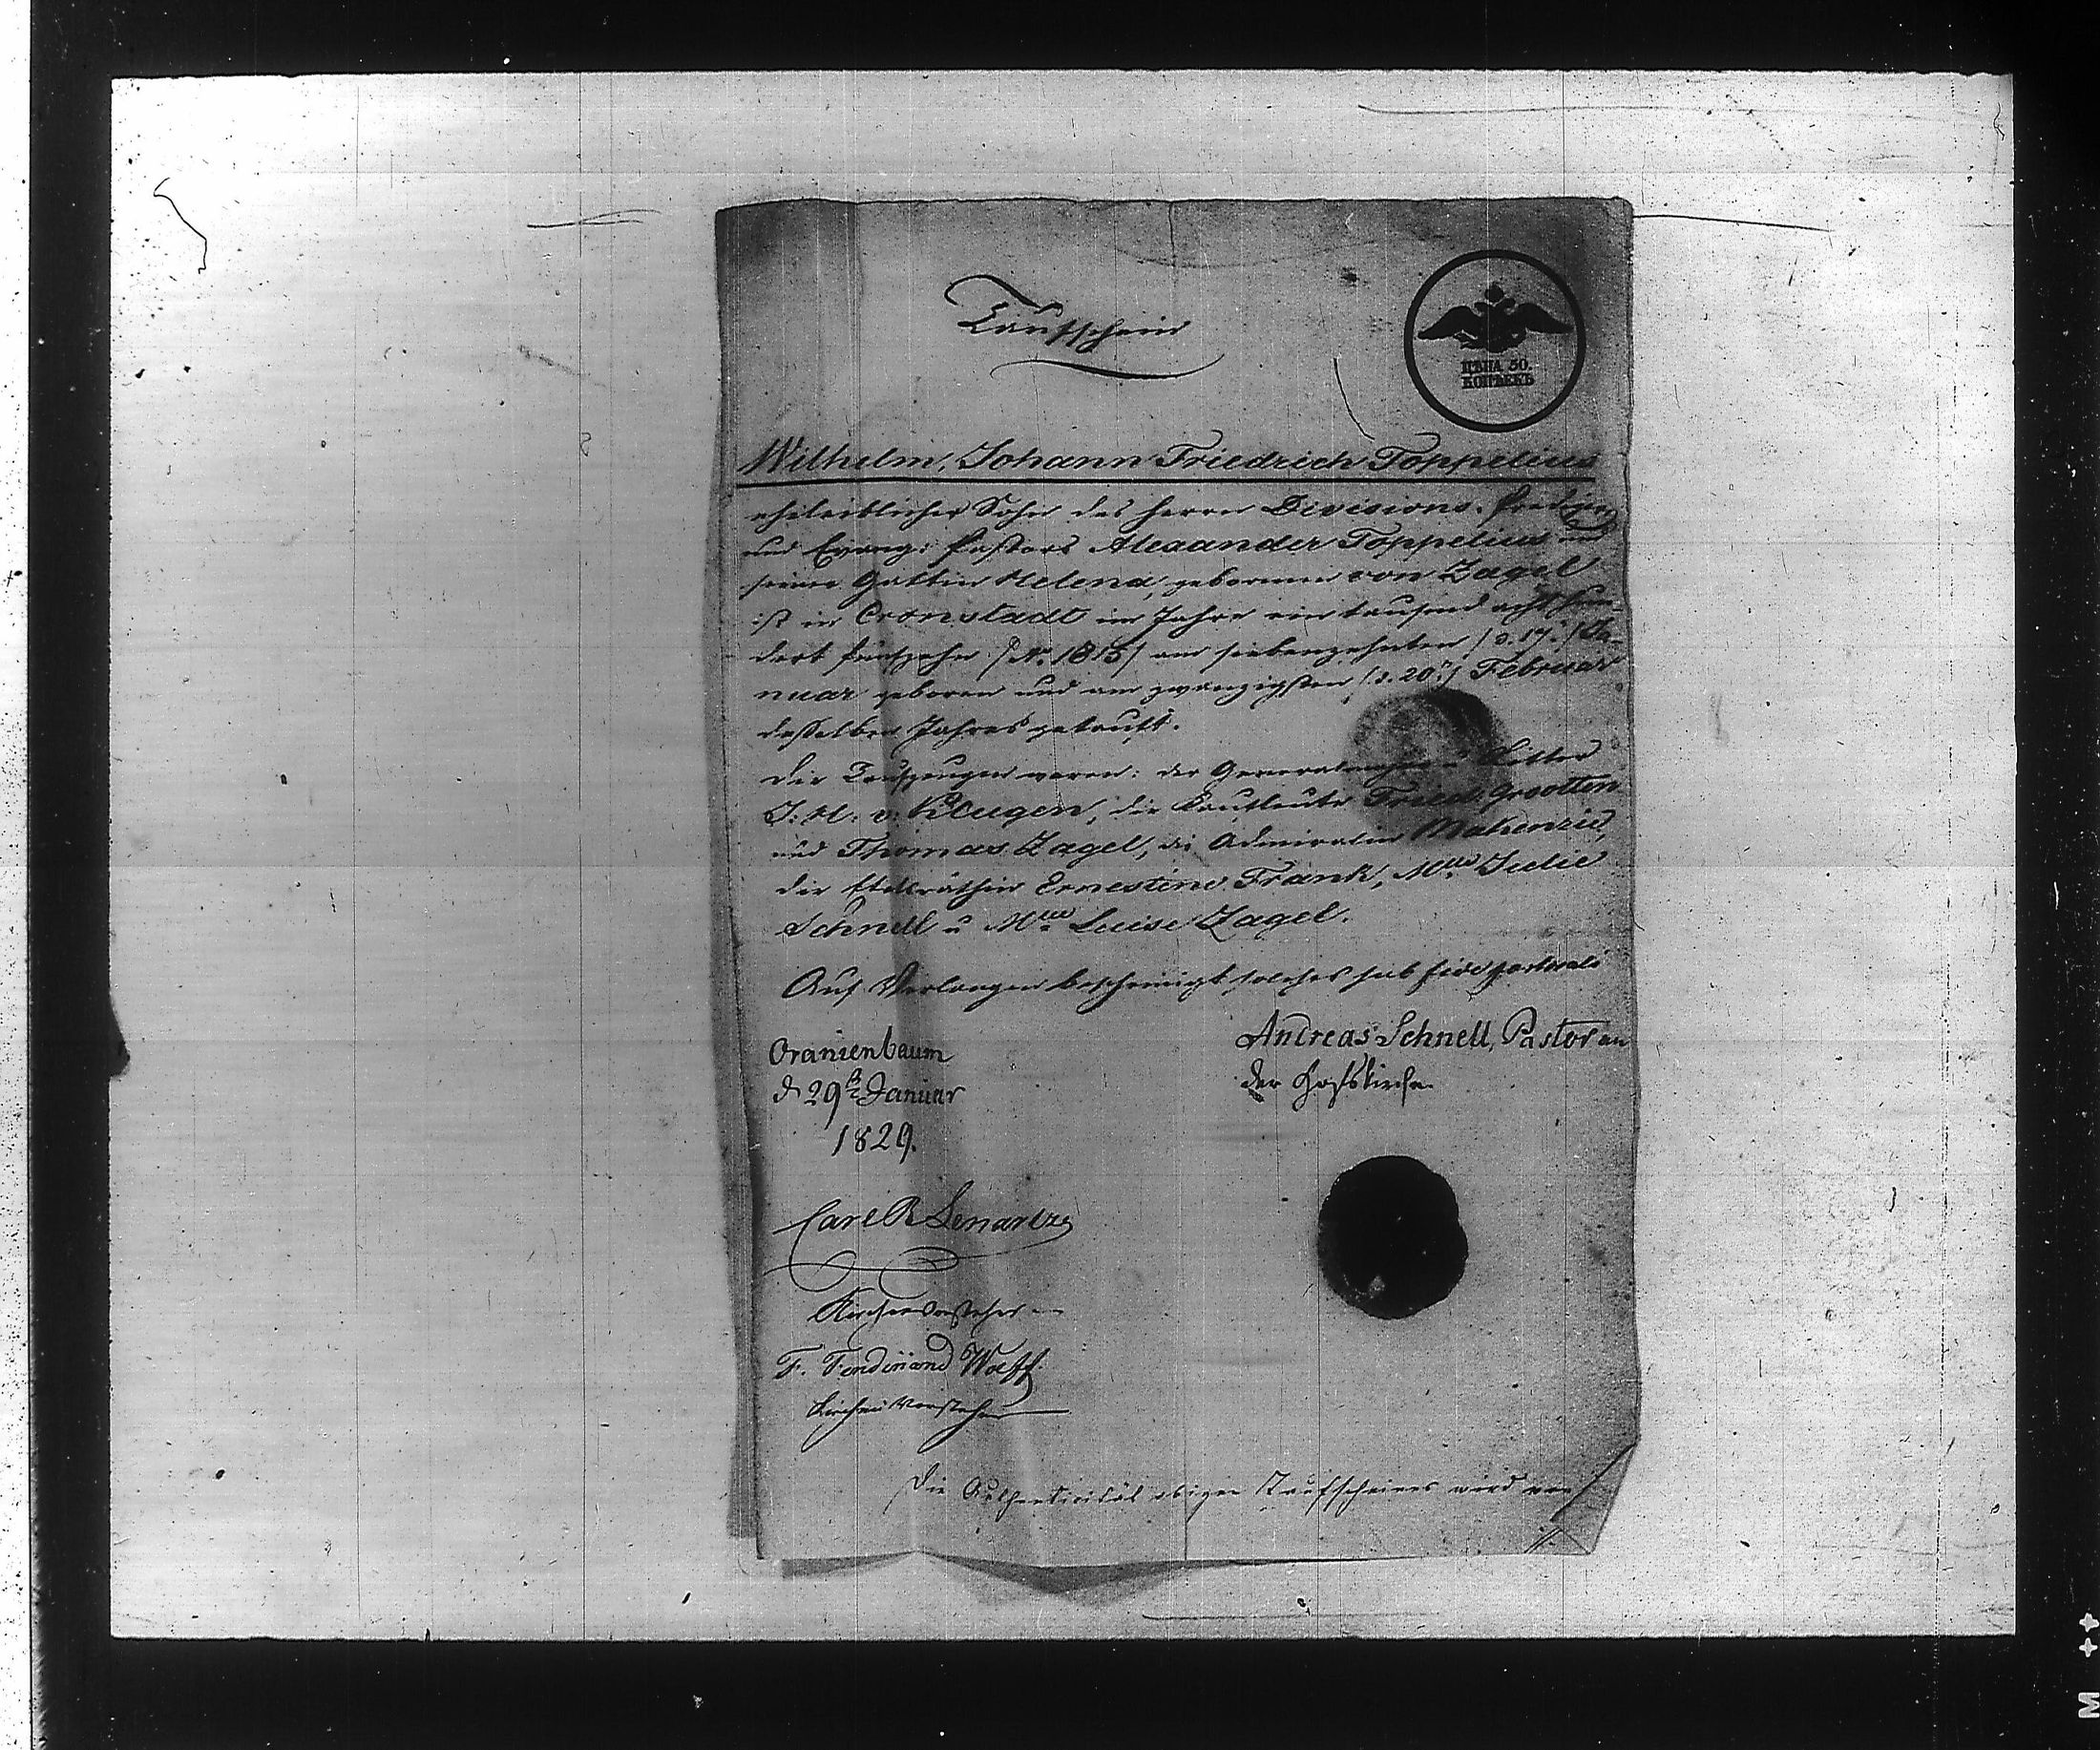 Taufschein
ЦѢНА 50.
КОПѢЕКЪ
Wilhelm, Johann Friedrich Toppelius
eheleiblicher Sohn des Herrn Divisions-Predigers
und Evang: Pastors Alexander Toppelius und
seiner Gattin Helena, gebornen von Zagel
ist in Cronstadt im Jahre ein tausend acht hun-
dert funfzehn /: No. 1815/ am siebenzehnten /: d. 17n:/ Ja-
nuar geboren und am zwanzigsten /: d. 20n:/ Februar
desselben Jahres getauft.
Die Taufzeugen waren: der Generalmajor u Ritter
J: H: v: Klugen, die Kaufleute Fried: Grootten
und Thomas Zagel, die Admiralin Makenzie,
die Etatsräthin Ernestine Frank, Mlle Julie
Schnell u Mlle Luise Zagel.
Auf Verlangen bescheinigt solches sub fide pastorali
Oranienbaum
d 29ten Januar
1829.
Andreas Schnell, Pastor an
der Hofskirche.
Carl R Lenartzo
Kirchenvorsteher
F. Ferdinand Wolff
Kirchen Vorsteher
Die Authenticität obigen Taufscheines wird von